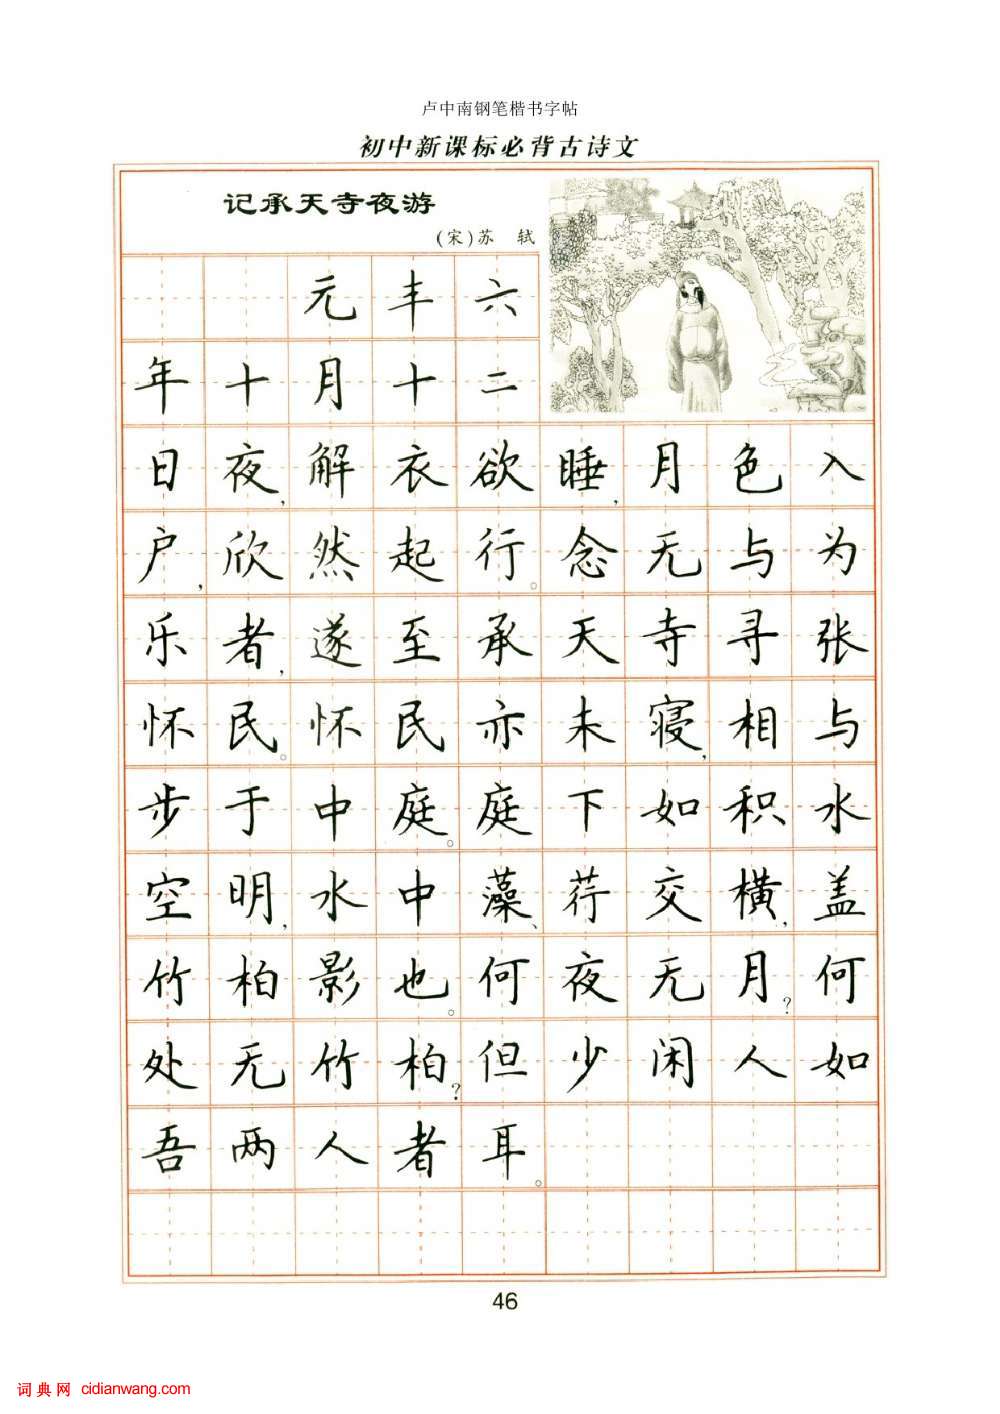 卢中南钢笔楷书字帖
初中新课标必背古诗文
记承天寺夜游
(宋)苏 轼
元丰六
年十月十二
日夜,解衣欲睡,月色入
户,欣然起行。念无与为
乐者,遂至承天寺寻张
怀民。怀民亦未寝,相与
步于中庭。庭下如积水
空明,水中藻、荇交横,盖
竹柏影也。何夜无月?何
处无竹柏?但少闲人如
吾两人者耳。
46
词典网 cidianwang.com